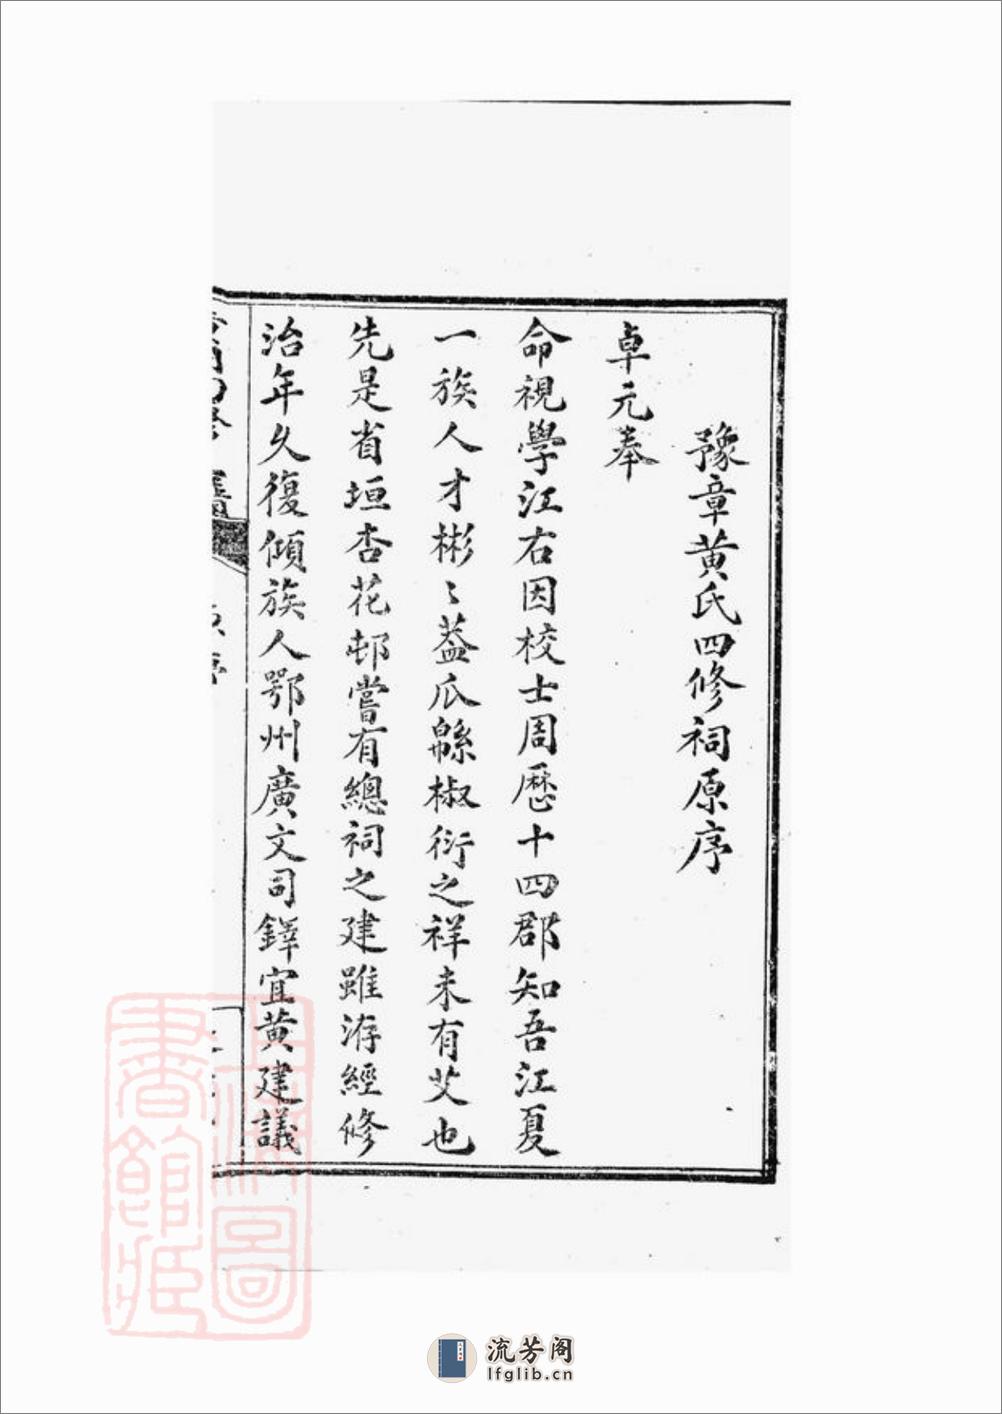 豫章黄氏四修祠原序
卓元奉
命視學江右因校士周歷十四郡知吾江夏
一族人才彬〻葢瓜緜椒衍之祥未有艾也
先是省垣杏花邨嘗有總祠之建雖洊經修
治年久復傾族人鄂州廣文司鐸宜黄建議
流芳阁
lfglib.cn